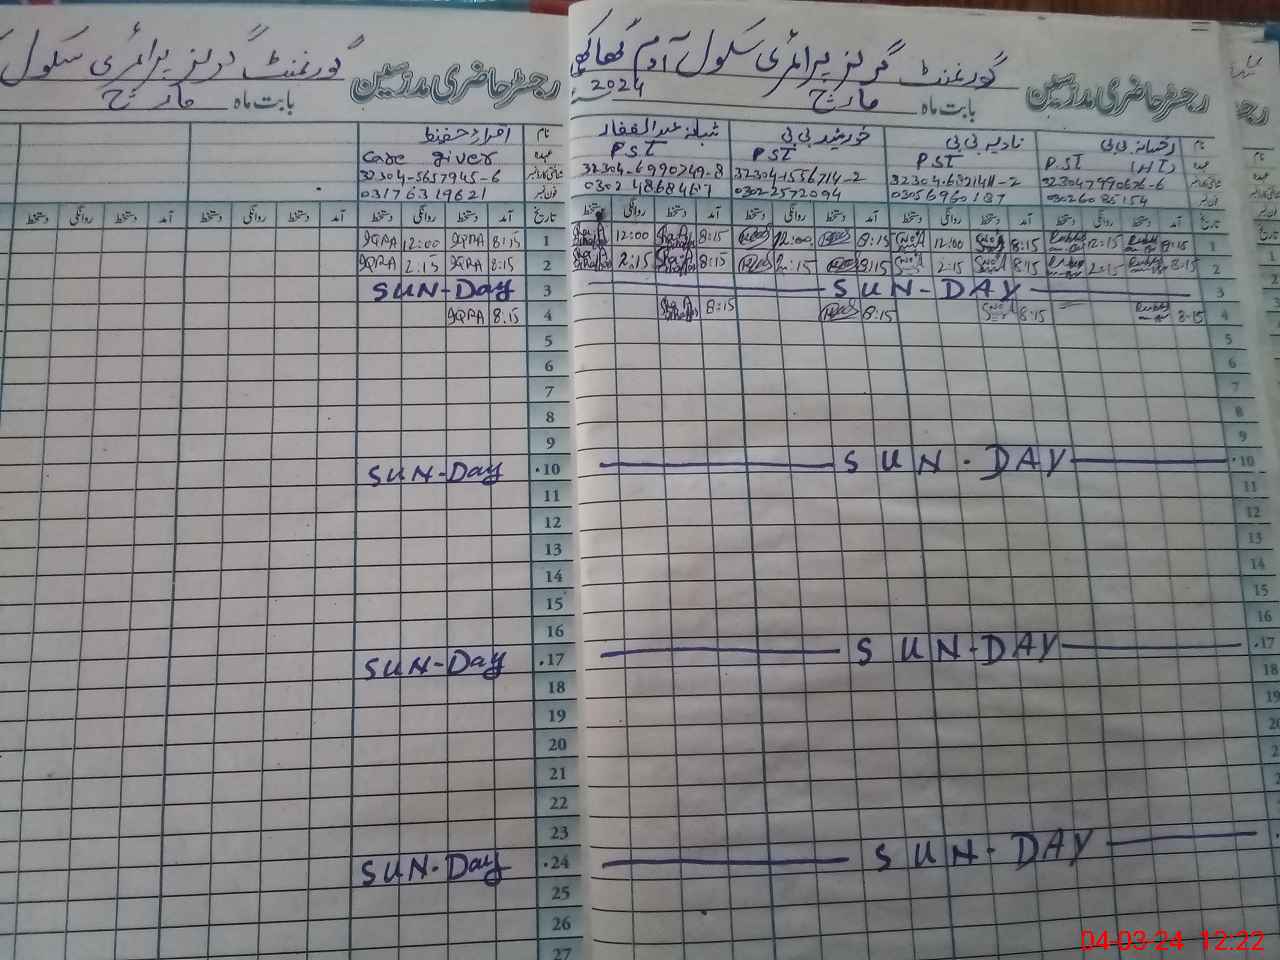 گورنمنٹ گرلز پرائمری سکول آدم گھاکھی
2024
رجسٹر حاضری مدرسین
بابت ماہ مارچ
نام رخسانہ بی بی نادیہ بی بی خورشید بی بی شبانہ عبدالغفار
عہدہ PST (HT) PST PST PST
32304-1556714-2 32304-6990749-8
03026085154 03056960187 0302-2572094
تاریخ آمد دستخط روانگی دستخط آمد دستخط روانگی دستخط آمد دستخط روانگی دستخط آمد دستخط روانگی دستخط
1 8:15 12:15 8:15 12:00 8:15 12:00 8:15 12:00
2 8:15 2:15 8:15 2:15 8:15 2:15 8:15 2:15
3 SUN-DAY
4 8:15 8:15 8:15 8:15
5
6
7
8
9
10 SUN-DAY
11
12
13
14
15
16
17 SUN-DAY
18
19
20
21
22
23
SUN-DAY
گورنمنٹ گرلز پرائمری سکول
رجسٹر حاضری مدرسین
بابت ماہ مارچ
نام اقراء حفیظ
عہدہ Care giver
32304-5657945-6
03176319621
تاریخ آمد دستخط روانگی دستخط آمد دستخط روانگی دستخط آمد دستخط روانگی دستخط
1 8:15 IQRA 12:00 IQRA
2 8:15 IQRA 2:15 IQRA
3 SUN-Day
4 8:15 IQRA
5
6
7
8
9
10 SUN-Day
11
12
13
14
15
16
17 SUN-Day
18
19
20
21
22
23
24 SUN-Day
25
26
27
04-03-24 12:22